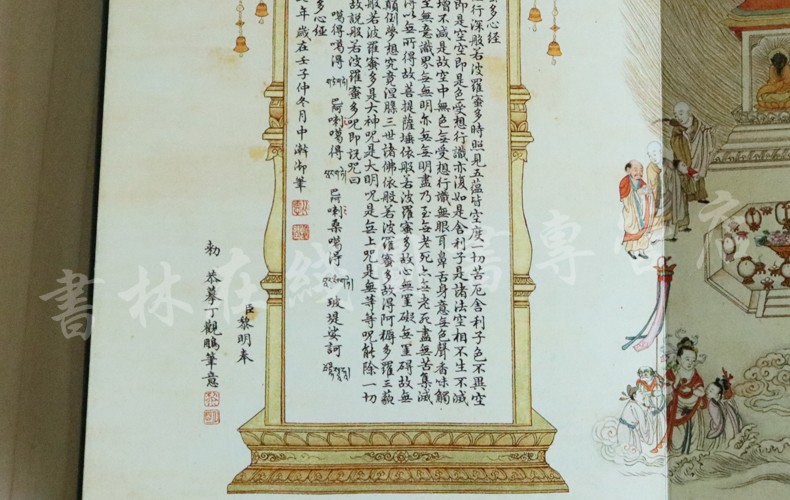 多心經
行深般若波羅蜜多時照見五蘊皆空度一切苦厄舍利子色不異空
即是空空即是色受想行識亦復如是舍利子是諸法空相不生不滅
增不減是故空中無色無受想行識無眼耳鼻舌身意無色聲香味觸
至無意識界無無明亦無無明盡乃至無老死亦無老死盡無苦集滅
得以無所得故菩提薩埵依般若波羅蜜多故心無罣礙無罣碍故無
顛倒夢想究竟涅槃三世諸佛依般若波羅蜜多故得阿耨多羅三藐
般若波羅蜜多是大神呪是大明呪是無上呪是無等等呪能除一切
故說般若波羅蜜多呪即說呪曰
噶得噶得 喇噶得 喇桑噶得 玻堤娑訶
多心經
年歲在壬子仲冬月中澣御筆
臣黎明奉
勅恭摹丁觀鵬筆意
書林在綫 專